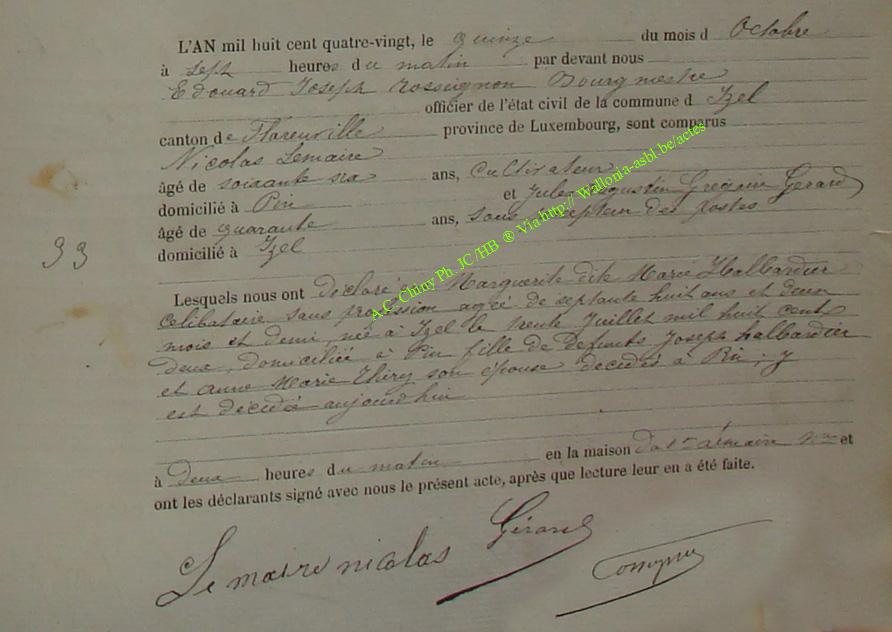 L'AN mil huit cent quatre-vingt, le quinze du mois d Octobre
à sept heures du matin par devant nous
Edouard Joseph Rossignon Bourgmestre
officier de l'état civil de la commune d Izel
canton de Florenville province de Luxembourg, sont comparus
Nicolas Lemaire
âgé de soixante six ans, Cultivateur
domicilié à Pin et Jules Agustin Grégoire Gerard
âgé de quarante ans, Sous des Postes
domicilié à Izel
33
A.C. Chiny Ph. JC/HB ® Via http:// Wallonia-asbl.be/actes
Lesquels nous ont déclaré que Marguerite dite Marie Halbardier
celibataire sans profession agée de septante huit ans et deux
mois et demi, née à Izel le trente Juillet mil huit cent
deux, domiciliée à Pin fille de défunts Joseph halbardier
et anne Marie Thiry son épouse decedés à Pin, y
est décédée aujourdhui
à Deux heures du matin en la maison du et
ont les déclarants signé avec nous le présent acte, après que lecture leur en a été faite.
Lemaire nicolas Gérard
Rossignon